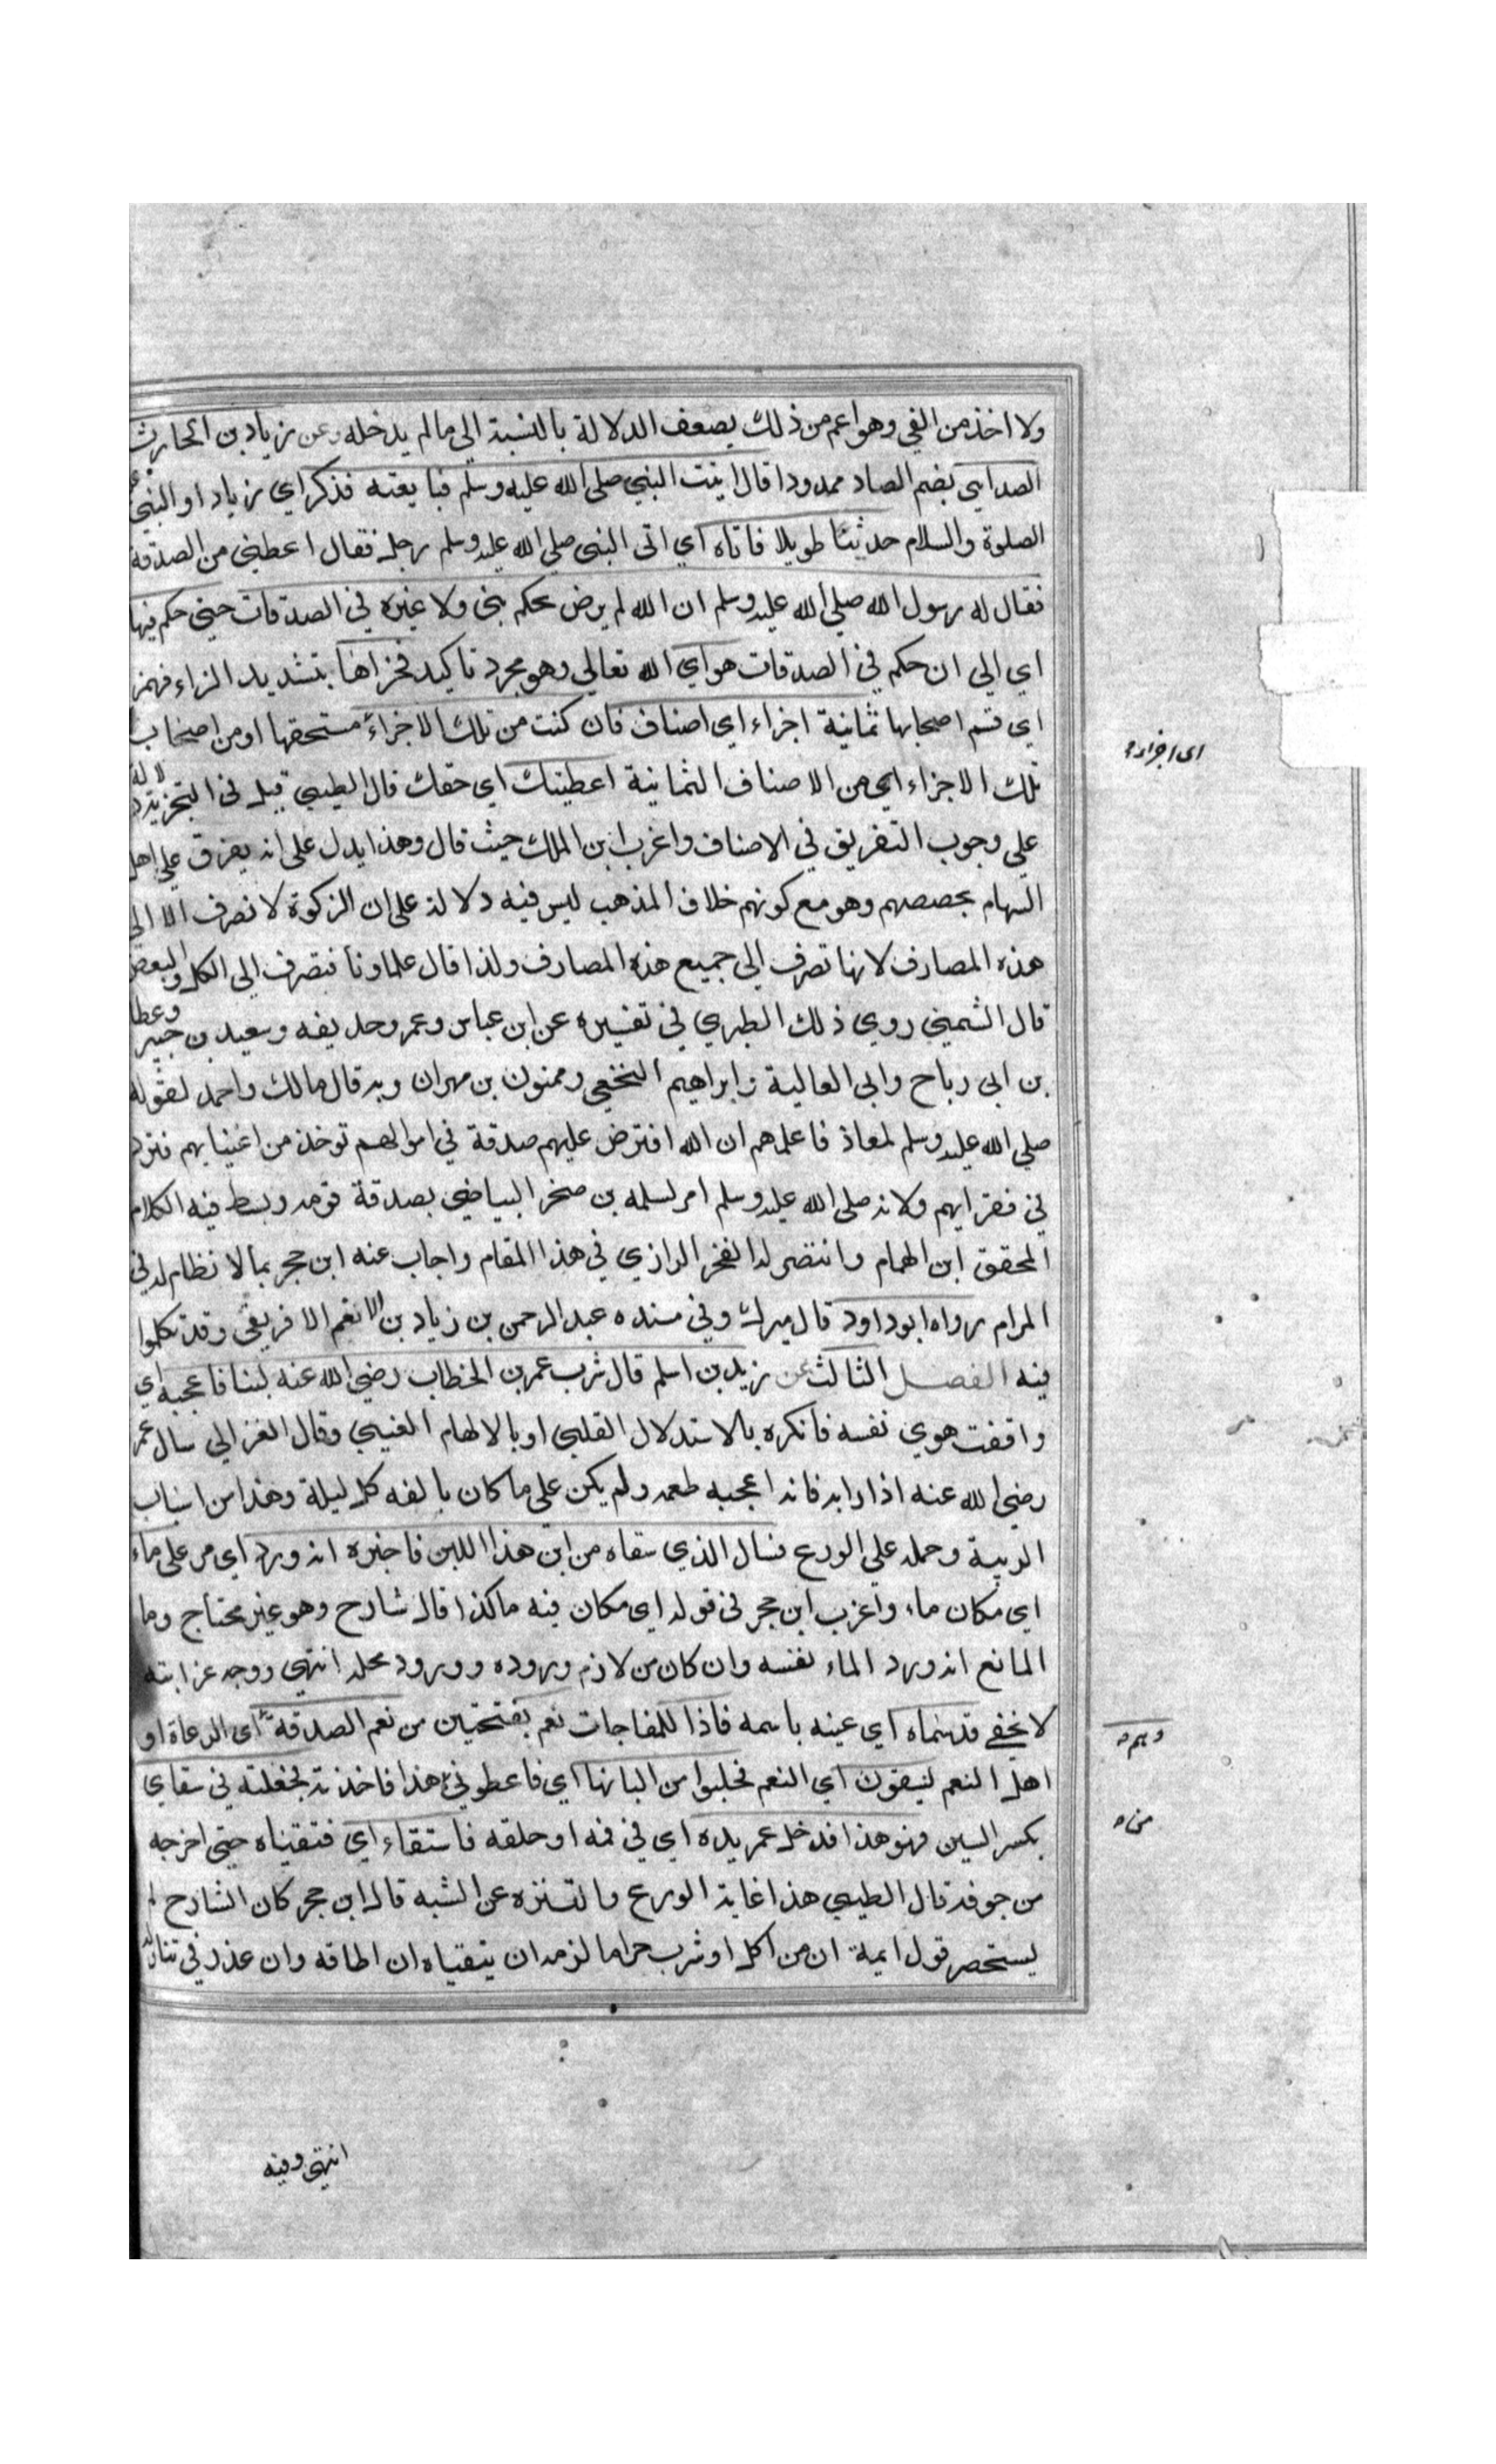 ولا اخذ من الفي وهو اعم من ذلك يضعف الدلالة بالنسبة الى ما لم يدخله وعن زياد بن الحارث
الصدايي بضم الصاد ممدودا قال اتيت النبي صلى الله عليه وسلم فبايعته فذكر اي زياد او النبي عليه
الصلوة والسلام حديثا طويلا فاتاه اي اتى النبي صلى الله عليه وسلم رجل فقال اعطني من الصدقة
فقال له رسول الله صلى الله عليه وسلم ان الله لم يرض بحكم نبي ولا غيره في الصدقات حتى حكم فيها
اي الى ان حكم في الصدقات هو اي الله تعالى وهو مجرد تاكيد فجزاها بتشديد الزاء فهمز
اي قسم اصحابها ثمانية اجزاء اي اصناف فان كنت من تلك الاجزاء مستحقها او من اصحاب
اى اجزاء
تلك الاجزاء اي من الاصناف الثمانية اعطيتك اي حقك قال الطيبي قيل في التجزية دلالة
على وجوب التفريق في الاصناف واغرب ابن الملك حيث قال وهذا يدل على انه يفرق على اهل
السهام بحصصهم وهو مع كونهم خلاف المذهب ليس فيه دلالة على ان الزكوة لا تصرف الا الى
هذه المصارف لانها تصرف الى جميع هذه المصارف ولذا قال علماونا فتصرف الى الكل والبعض
قال الشمني روي ذلك الطبري في تفسيره عن ابن عباس وعمر وحديفه وسعيد بن جبير وعطا
بن ابى رباح وابى العالية وابراهيم النخعي وممنون بن مهران وبه قال مالك واحمد لقوله
صلى الله عليه وسلم لمعاذ فاعلمهم ان الله افترض عليهم صدقة في اموالهم توخذ من اغنيايهم فترد
في فقرايهم ولانه صلى الله عليه وسلم امر لسلمه بن صخر البياضي بصدقة قومه وبسط فيه الكلام
المحقق ابن الهمام وانتصر له الفخر الرازي في هذا المقام واجاب عنه ابن حجر بما لا نظام له في
المرام رواه ابو داود قال ميرك وفي سنده عبد الرحمن بن زياد بن الانعم الافريقي وقد تكلموا
فيه الفصل الثالث عن زيد بن اسلم قال شرب عمر بن الخطاب رضي الله عنه لبنا فاعجبه اي
وافقت هوي نفسه فانكره بالاستدلال القلبي او بالالهام الغيبي وقال الغزالي سال عمر
رضي الله عنه اذا رابه فانه اعجبه طعمه ولم يكن على ما كان يالفه كل ليلة وهذا من اسباب
الريبة وحمله على الورع فسال الذي سقاه من اين هذا اللبن فاخبره انه ورد اي مر على ماء
اي مكان ماء واغرب ابن حجر في قوله اى مكان فيه ما كذا قال شارح وهو غير محتاج وما
المانع انه ورد الماء نفسه وان كان من لازم وروده وورود محله انتهى ووجه غرابته
لا يخفى قد سماه اي عينه باسمه فاذا للمفاجات نعم بفتحتين من نعم الصدقة اى الرعاة او
وهم
اهل النعم ليسقون اي النعم فحلبوا من البانها اي فاعطوني هذا فاخذته فجعلته في سقاي
بكسر السين فهو هذا فدخل عمر يده اي في فمه او حلقه فاستقاء اي فتقيئاه حتى اخرجه
من
من جوفه قال الطيبي هذا غاية الورع والتنزه عن الشبه قال ابن حجر كان الشارح لم
يستحضر قول ايمة ان من اكل او شرب حراما لزمه ان يتقياه ان اطاقه وان عذر في تناوله
انتهى وفيه